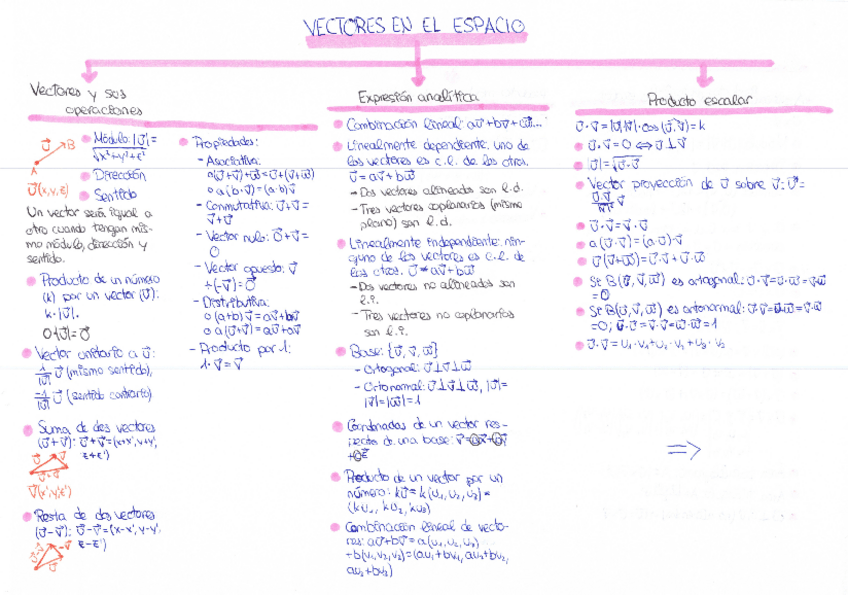 VECTORES EN EL ESPACIO
Vectores y sus
operaciones
A
B
Módulo: |u⃗|=
√x²+y²+z²
Dirección
u⃗(x,y,z)
Sentido
Un vector será igual a
otro cuando tengan mis-
mo módulo, dirección y
sentido.
Producto de un número
(k) por un vector (u⃗):
k·|u⃗|.
0·|u⃗|=0⃗
Vector unitario a u⃗:
1/|u⃗| u⃗ (mismo sentido),
-1/|u⃗| u⃗ (sentido contrario)
Suma de dos vectores
(u⃗+v⃗): u⃗+v⃗=(x+x', y+y',
z+z')
v⃗(x',y',z')
Resta de dos vectores
(u⃗-v⃗): u⃗-v⃗=(x-x', y-y',
z-z')
Propiedades:
- Asociativa:
(u⃗+v⃗)+w⃗=u⃗+(v⃗+w⃗)
a(b·v⃗)=(a·b)v⃗
- Conmutativa: u⃗+v⃗=
v⃗+u⃗
- Vector nulo: 0⃗+v⃗=
- Vector opuesto: v⃗
+(-v⃗)=0⃗
- Distributiva:
(a+b)v⃗=av⃗+bv⃗
- Producto por 1:
1·v⃗=v⃗
Expresión analítica
Combinación lineal: au⃗+bv⃗+cw⃗...
Linealmente dependiente: uno de
los vectores es c.l. de los otros.
u⃗=av⃗+bw⃗
- Dos vectores alineados son l.d.
- Tres vectores coplanarios (mismo
plano) son l.d.
Linealmente independiente: nin-
guno de los vectores es c.l. de
los otros. u⃗≠av⃗+bw⃗
- Dos vectores no alineados son
l.i.
- Tres vectores no coplanarios
son l.i.
Base: {u⃗, v⃗, w⃗}
- Ortogonal: u⃗⊥v⃗⊥w⃗
- Ortonormal: u⃗⊥v⃗⊥w⃗, |u⃗|=
|v⃗|=|w⃗|=1
Coordenadas de un vector res-
pecto de una base:
Producto de un vector por un
número: ku⃗=k(u₁, u₂, u₃)=
(ku₁, ku₂, ku₃)
Combinación lineal de vecto-
res: au⃗+bv⃗=a(u₁,u₂,u₃)
Producto escalar
u⃗·v⃗=|u⃗||v⃗|·cos(u⃗,v⃗)=k
u⃗·v⃗=0⇔u⃗⊥v⃗
Vector proyección de u⃗ sobre v⃗:
u⃗·v⃗=v⃗·u⃗
a(u⃗·v⃗)=(a·u⃗)·v⃗
u⃗(v⃗+w⃗)=u⃗·v⃗+u⃗·w⃗
Si B(u⃗,v⃗,w⃗) es ortogonal: u⃗·v⃗=u⃗·w⃗=v⃗·w⃗
=0
Si B(u⃗,v⃗,w⃗) es ortonormal:
=0; u⃗·u⃗=v⃗·v⃗=w⃗·w⃗=1
⇒